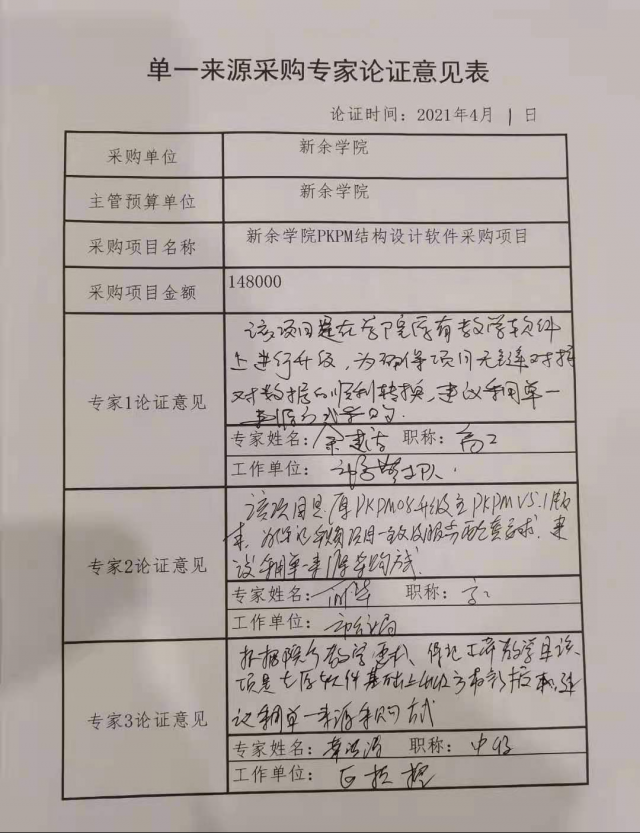 单一来源采购专家论证意见表
论证时间：2021年4月 1 日
采购单位 新余学院
主管预算单位 新余学院
采购项目名称 新余学院PKPM结构设计软件采购项目
采购项目金额 148000
该项目是在学院原有教学软件
上进行升级，为确保项目无缝对接
专家1论证意见 对数据的顺利转换，建议采用单一
来源方式采购.
专家姓名：余 职称：高工
工作单位：
该项目是原PKPM08升级至PKPMV5.1版
本，为保证采购项目一致及服务配套要求，建
专家2论证意见 议采用单一来源采购方式.
专家姓名： 职称：高工
工作单位：
根据 教学 保证 教学
项是在原软件基础上
专家3论证意见 议采用单一来源采购方式
专家姓名： 职称：中级
工作单位：